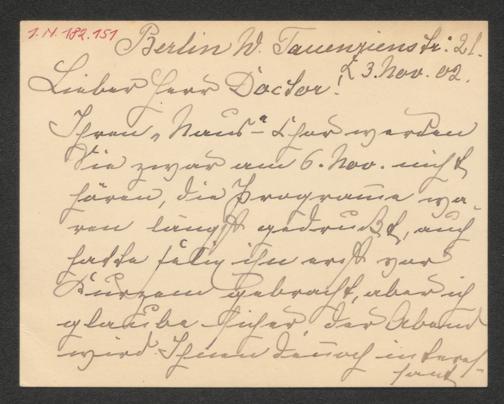 I.N. 182.151
Berlin W. Tauenzienstr: 21.
d. 3. Nov. 02.
Lieber Herr Doctor!
Ihren "Haus"-Chor werden
Sie zwar am 6. Nov. nicht
hören, die Programe wa-
ren längst gedruckt, auch
hatte Felix ihn erst vor
Kurzem gebracht, aber ich
glaube sicher der Abend
wird Ihnen dennoch interes-
sant